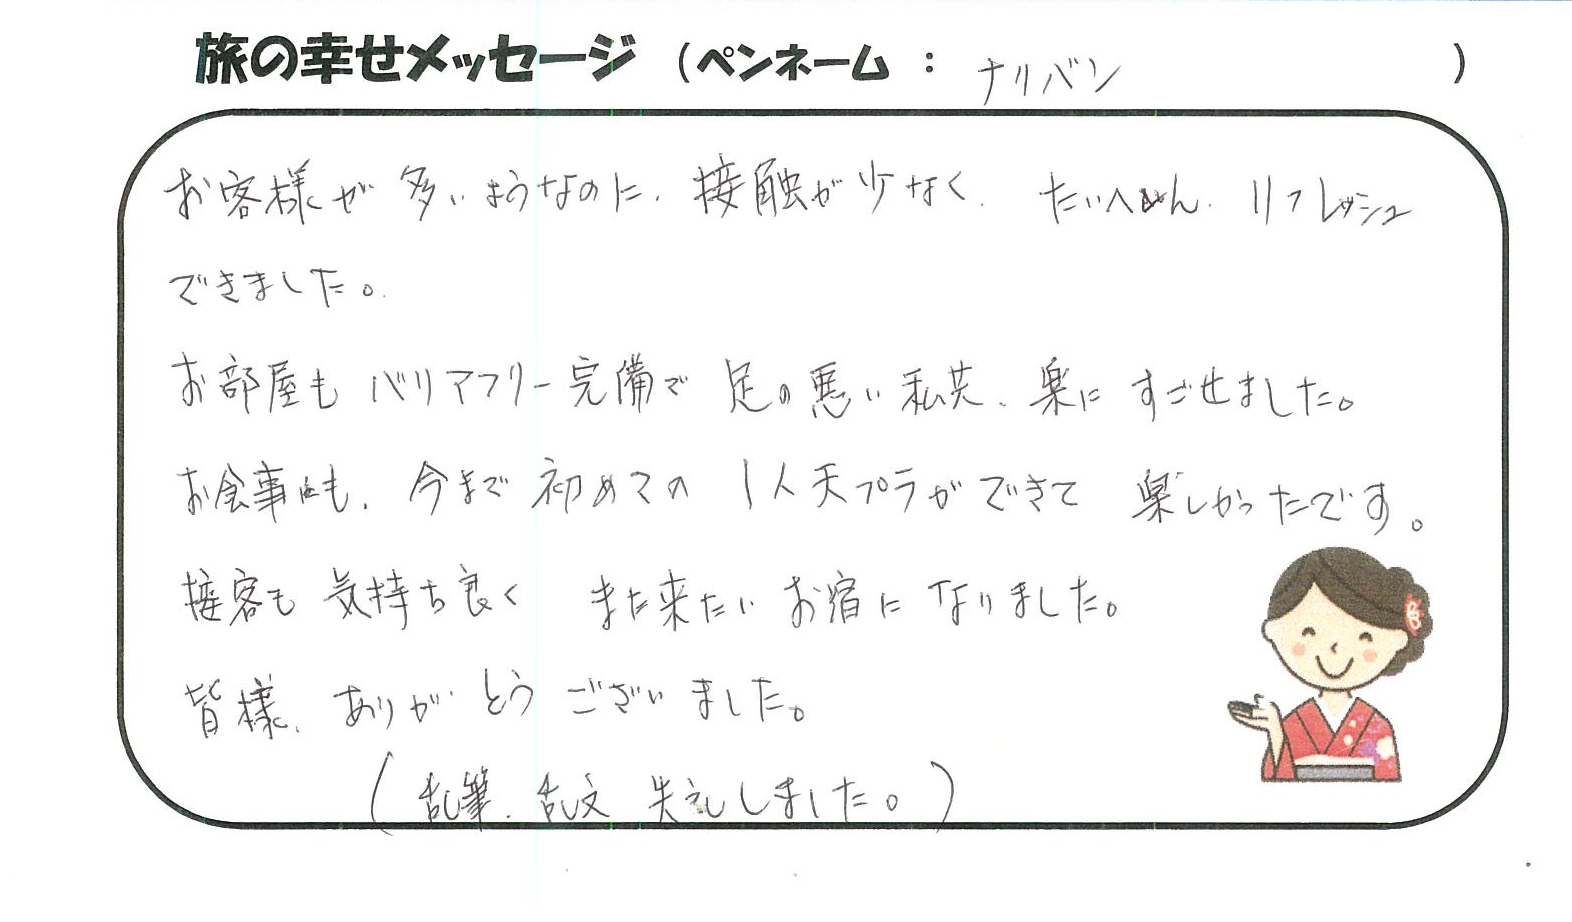 旅の幸せメッセージ (ペンネーム : ナリバン )
お客様が 多いようなのに、接触が少なく、たいへん、リフレッシュ
できました。
お部屋も バリアフリー完備で 足の悪い私共、楽に すごせました。
お食事も、今まで 初めての 1人天プラができて 楽しかったです。
接客も 気持ち良く また来たい お宿に なりました。
皆様、ありがとう ございました。
(乱筆、乱文 失礼しました。)